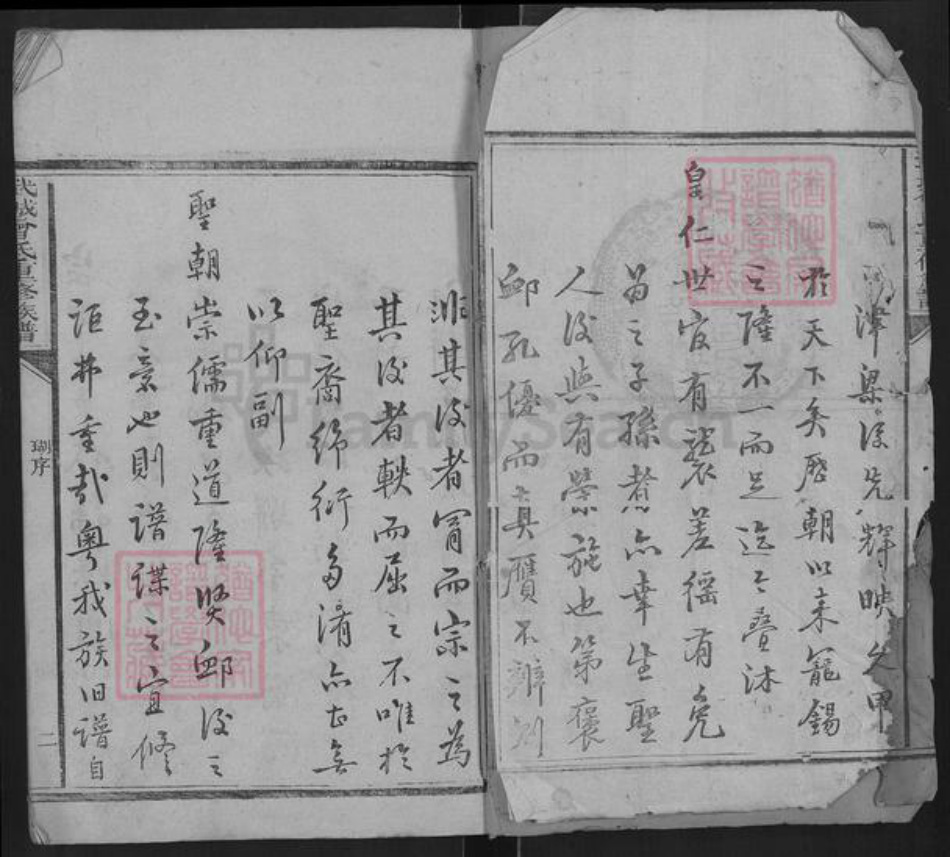 澤梁後先輝映久甲
於天下矣歷朝以來寵錫
之隆不一而足迄今疊沐
皇仁世宦有襲差徭有免
曾之子孫者亦幸生聖
人後與有榮施也第褒
卹孔優而真贋不辨則
非其後者冐而宗之為
其後者軼而屈之不唯於
聖裔綿衍多淆亦甚無
以仰副
聖朝崇儒重道隆賢卹後之
至意也則譜諜之宜修
詎弗重哉粵我族旧譜自
武城曾氏重修族譜
瑚序
二